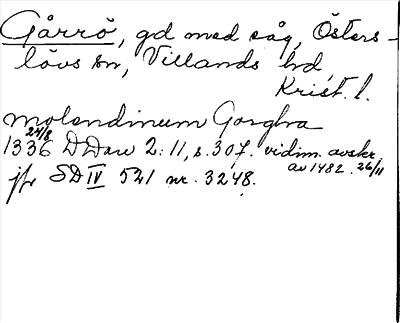 Gårrö, gd med såg, Östers-
lövs sn, Villands hd,
Krist. l.
molendinum Gorghra
1336 24/8 DDan 2:11, s. 307. vidim. avskr.
av 1482 26/11
jfr SD IV 521 nr. 3248.